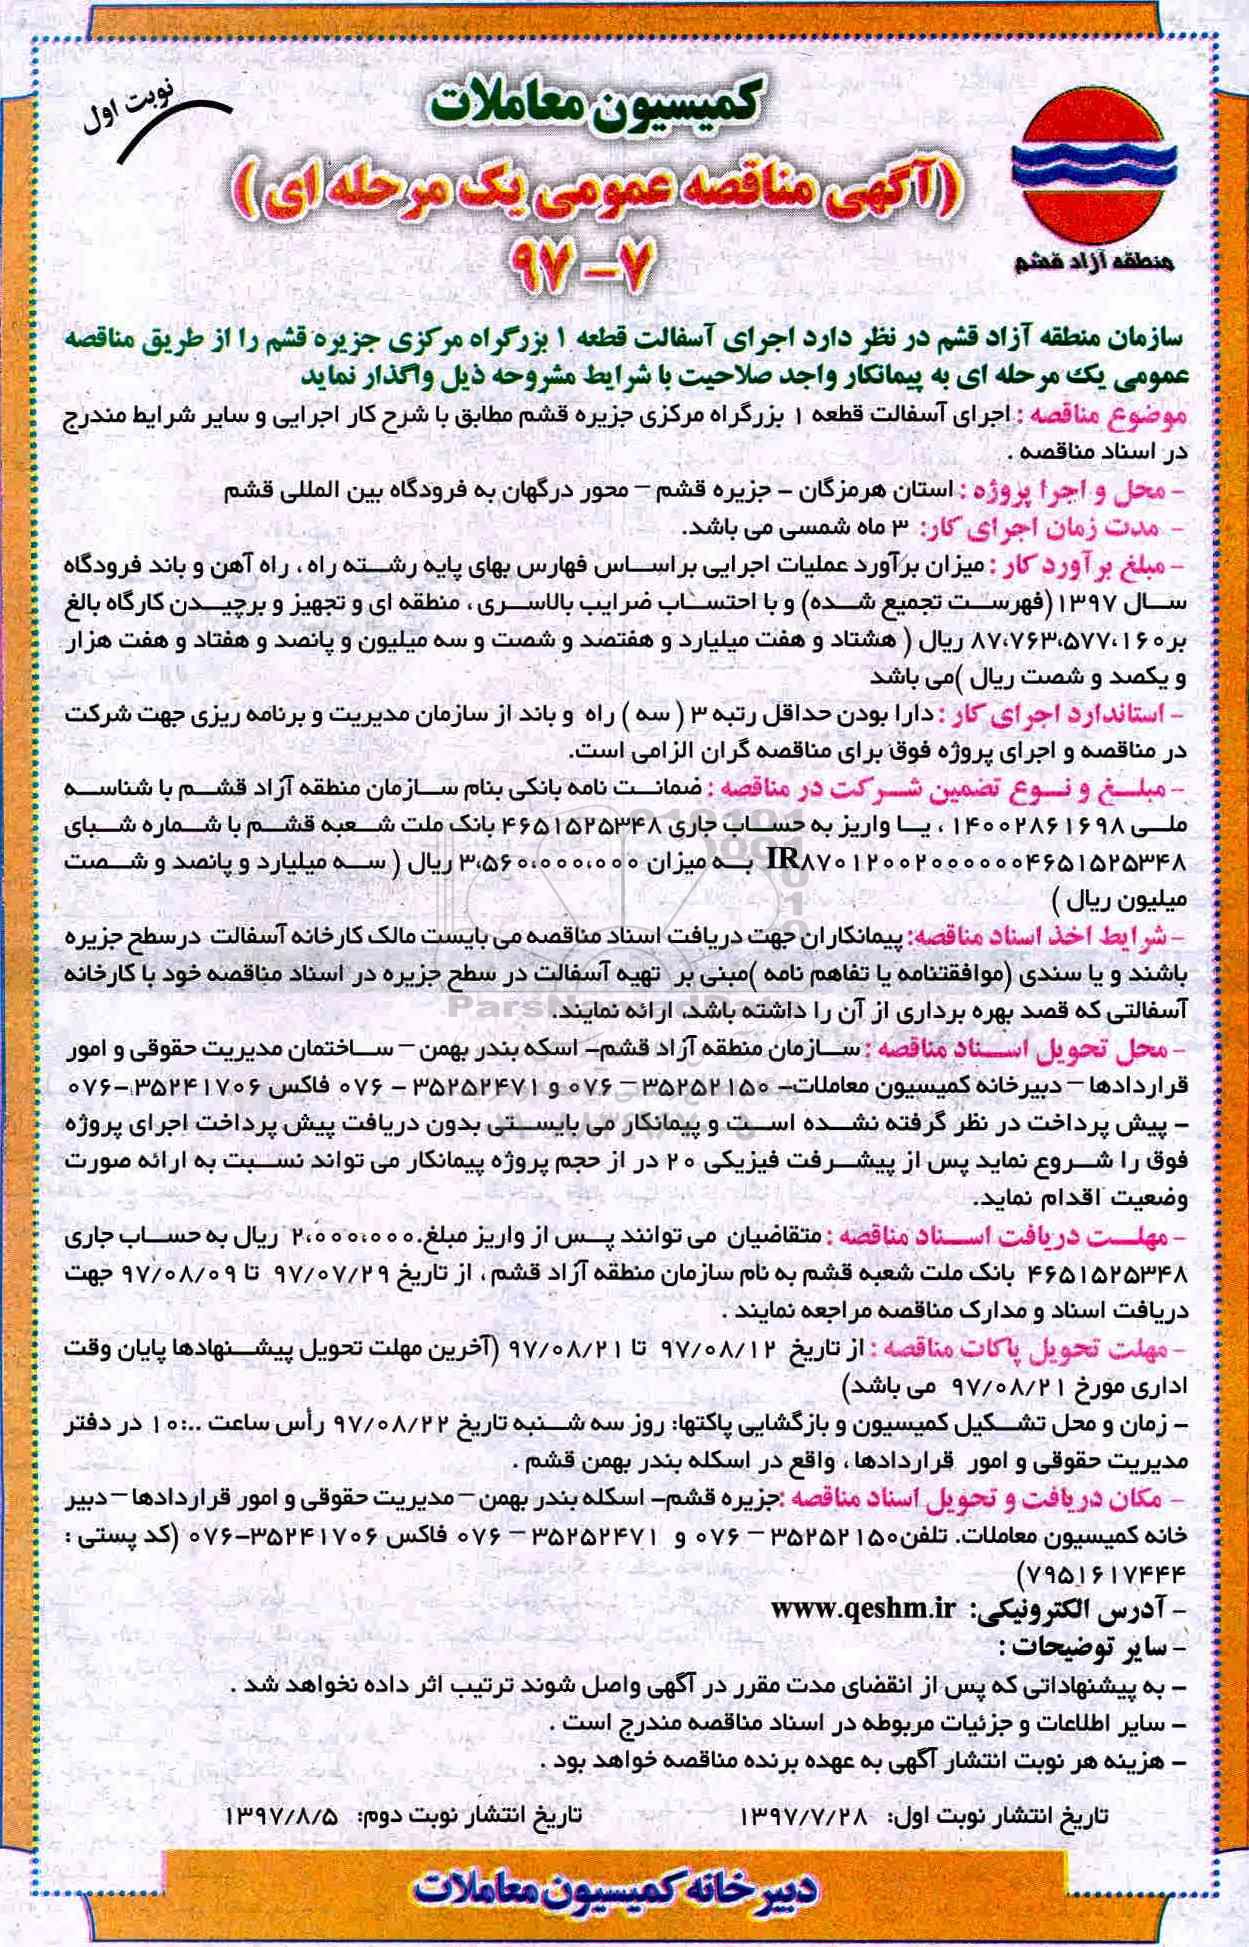 نوبت اول
کمیسیون معاملات
(آگهی مناقصه عمومی یک مرحله ای)
۷ - ۹۷
منطقه آزاد قشم
سازمان منطقه آزاد قشم در نظر دارد اجرای آسفالت قطعه ۱ بزرگراه مرکزی جزیره قشم را از طریق مناقصه
عمومی یک مرحله ای به پیمانکار واجد صلاحیت با شرایط مشروحه ذیل واگذار نماید
موضوع مناقصه : اجرای آسفالت قطعه ۱ بزرگراه مرکزی جزیره قشم مطابق با شرح کار اجرایی و سایر شرایط مندرج
در اسناد مناقصه .
- محل و اجرا پروژه : استان هرمزگان – جزیره قشم – محور درگهان به فرودگاه بین المللی قشم
- مدت زمان اجرای کار: ۳ ماه شمسی می باشد.
- مبلغ برآورد کار : میزان برآورد عملیات اجرایی براساس فهارس بهای پایه رشته راه ، راه آهن و باند فرودگاه
سال ۱۳۹۷ (فهرست تجمیع شده) و با احتساب ضرایب بالاسری ، منطقه ای و تجهیز و برچیدن کارگاه بالغ
بر ۸۷،۷۶۳،۵۷۷،۱۶۰ ریال ( هشتاد و هفت میلیارد و هفتصد و شصت و سه میلیون و پانصد و هفتاد و هفت هزار
و یکصد و شصت ریال )می باشد
- استاندارد اجرای کار : دارا بودن حداقل رتبه ۳ ( سه ) راه و باند از سازمان مدیریت و برنامه ریزی جهت شرکت
در مناقصه و اجرای پروژه فوق برای مناقصه گران الزامی است.
- مبلغ و نوع تضمین شرکت در مناقصه : ضمانت نامه بانکی بنام سازمان منطقه آزاد قشم با شناسه
ملی ۱۴۰۰۲۸۶۱۶۹۸ ، یا واریز به حساب جاری ۴۶۵۱۵۲۵۳۴۸ بانک ملت شعبه قشم با شماره شبای
IR۸۷۰۱۲۰۰۲۰۰۰۰۰۰۴۶۵۱۵۲۵۳۴۸ به میزان ۳،۵۶۰،۰۰۰،۰۰۰ ریال ( سه میلیارد و پانصد و شصت
میلیون ریال )
- شرایط اخذ اسناد مناقصه: پیمانکاران جهت دریافت اسناد مناقصه می بایست مالک کارخانه آسفالت درسطح جزیره
باشند و یا سندی (موافقتنامه یا تفاهم نامه )مبنی بر تهیه آسفالت در سطح جزیره در اسناد مناقصه خود با کارخانه
آسفالتی که قصد بهره برداری از آن را داشته باشد، ارائه نمایند.
- محل تحویل اسناد مناقصه : سازمان منطقه آزاد قشم– اسکه بندر بهمن – ساختمان مدیریت حقوقی و امور
قراردادها – دبیرخانه کمیسیون معاملات– ۳۵۲۵۲۱۵۰ – ۰۷۶ و ۳۵۲۵۲۴۷۱ – ۰۷۶ فاکس ۳۵۲۴۱۷۰۶–۰۷۶
– پیش پرداخت در نظر گرفته نشده است و پیمانکار می بایستی بدون دریافت پیش پرداخت اجرای پروژه
فوق را شروع نماید پس از پیشرفت فیزیکی ۲۰ در از حجم پروژه پیمانکار می تواند نسبت به ارائه صورت
وضعیت اقدام نماید.
- مهلت دریافت اسناد مناقصه : متقاضیان می توانند پس از واریز مبلغ ۲،۰۰۰،۰۰۰ ریال به حساب جاری
۴۶۵۱۵۲۵۳۴۸ بانک ملت شعبه قشم به نام سازمان منطقه آزاد قشم ، از تاریخ ۹۷/۰۷/۲۹ تا ۹۷/۰۸/۰۹ جهت
دریافت اسناد و مدارک مناقصه مراجعه نمایند .
- مهلت تحویل پاکات مناقصه : از تاریخ ۹۷/۰۸/۱۲ تا ۹۷/۰۸/۲۱ (آخرین مهلت تحویل پیشنهادها پایان وقت
اداری مورخ ۹۷/۰۸/۲۱ می باشد)
– زمان و محل تشکیل کمیسیون و بازگشایی پاکتها: روز سه شنبه تاریخ ۹۷/۰۸/۲۲ رأس ساعت ۱۰:۰۰ در دفتر
مدیریت حقوقی و امور قراردادها ، واقع در اسکله بندر بهمن قشم .
- مکان دریافت و تحویل اسناد مناقصه :جزیره قشم– اسکله بندر بهمن –مدیریت حقوقی و امور قراردادها –دبیر
خانه کمیسیون معاملات. تلفن۳۵۲۵۲۱۵۰ – ۰۷۶ و ۳۵۲۵۲۴۷۱ – ۰۷۶ فاکس ۳۵۲۴۱۷۰۶–۰۷۶ (کد پستی :
۷۹۵۱۶۱۷۴۴۴)
- آدرس الکترونیکی: www.qeshm.ir
- سایر توضیحات :
– به پیشنهاداتی که پس از انقضای مدت مقرر در آگهی واصل شوند ترتیب اثر داده نخواهد شد .
– سایر اطلاعات و جزئیات مربوطه در اسناد مناقصه مندرج است .
– هزینه هر نوبت انتشار آگهی به عهده برنده مناقصه خواهد بود .
تاریخ انتشار نوبت اول: ۱۳۹۷/۷/۲۸ تاریخ انتشار نوبت دوم: ۱۳۹۷/۸/۵
دبیرخانه کمیسیون معاملات